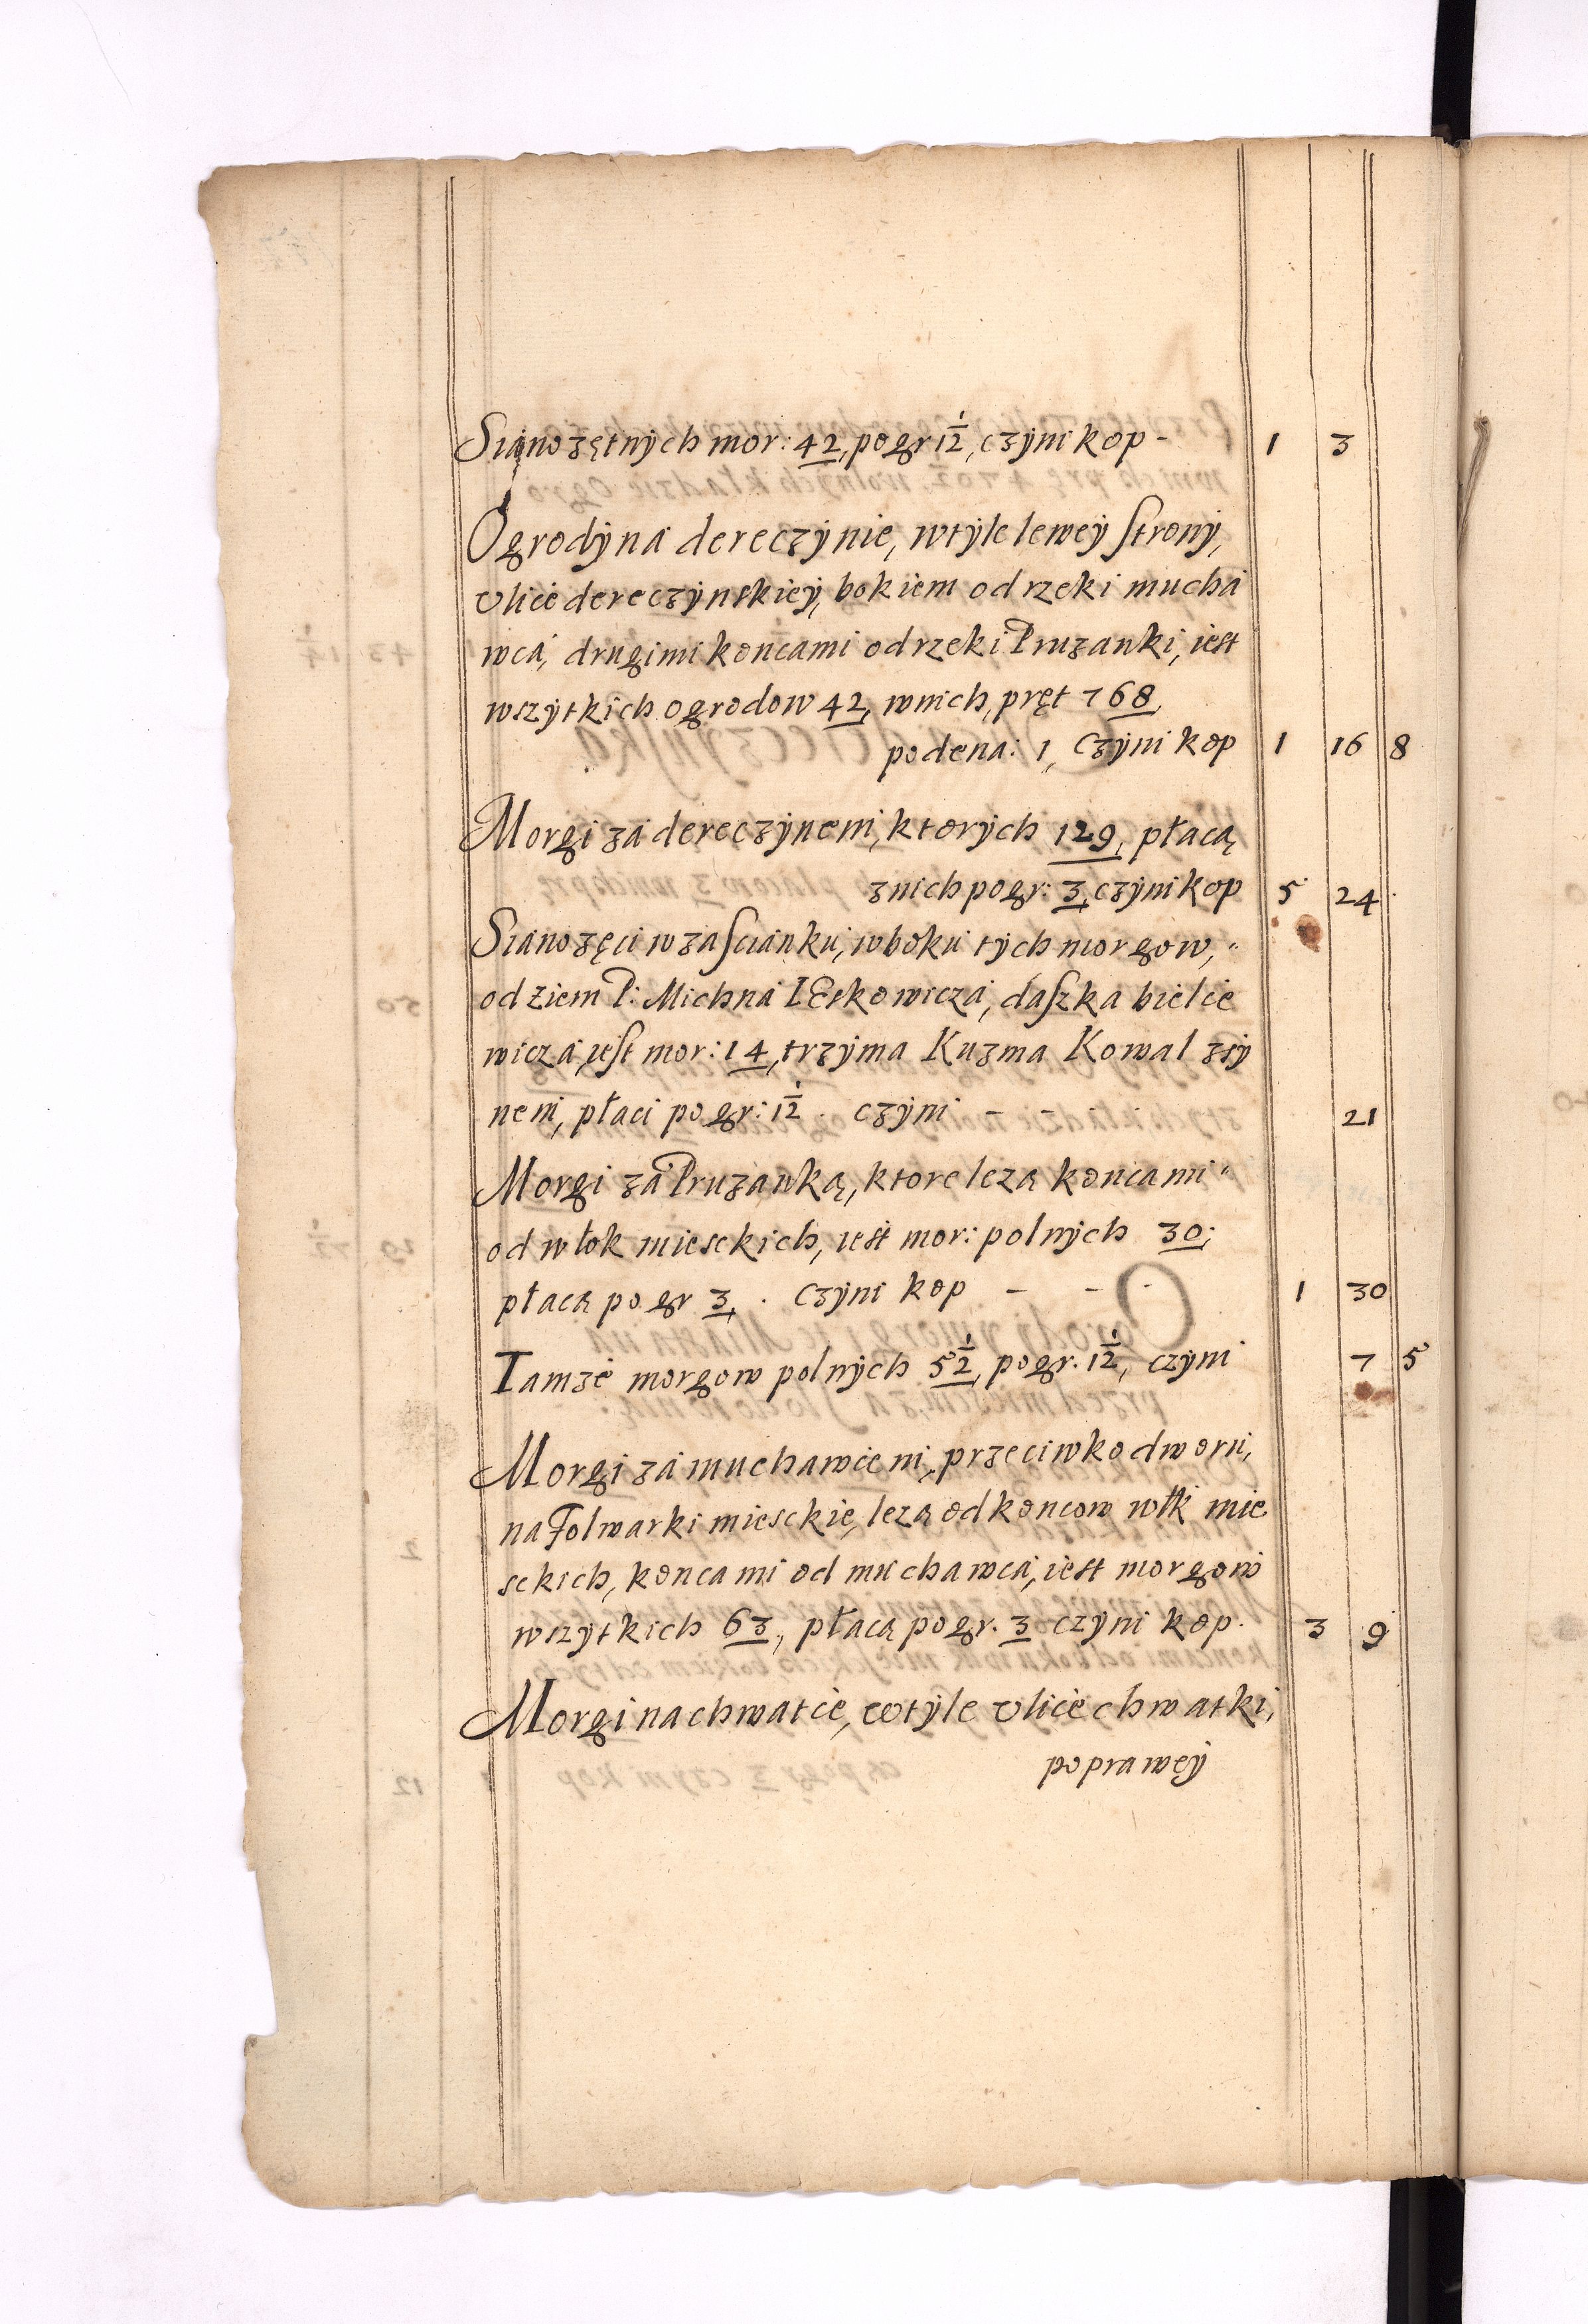 Sianożętnych mor: 42, po gr 1½, czyni kop - 1 3
Ogrody na dereczynie, w tyle lewey strony,
vlice dereczynskiey, bokiem od rzeki mucha
wca, drugimi koncami od rzeki Pruzanki, iest
wszytkich ogrodow 42, w nich, pręt 768,
po dena: 1, Czyni kop 1 16 8
Morgi za dereczynem, ktorych 129, płacą
z nich po gr: 3, czyni kop 5 24
Sianożęci w zascianku, w boku tych morgow,
od ziem P: Michna IEskowicza, daszka bielie
wicza, iest mor: 14, trzyma Kuzma Kowal z sy
nem, płaci po gr: 1½. czyni - - 21
Morgi za Pruzanką, ktore lezą koncami
od włok miesckich, iest mor: polnych 30;
płacą po gr 3, . Czyni kop - - - 1 30
Tamze morgow polnych 5½, po gr. 1½, czyni 7 5
Morgi za muchawcem, przeciwko dworu,
na Folwarki miesckie, lezą od koncow włk mie
sckich, koncami od muchawca, iest morgow
wszytkich 63, płacą po gr. 3 czyni kop. 3 9
Morgi na chwatce, w tyle vlice chwatki,
po prawey